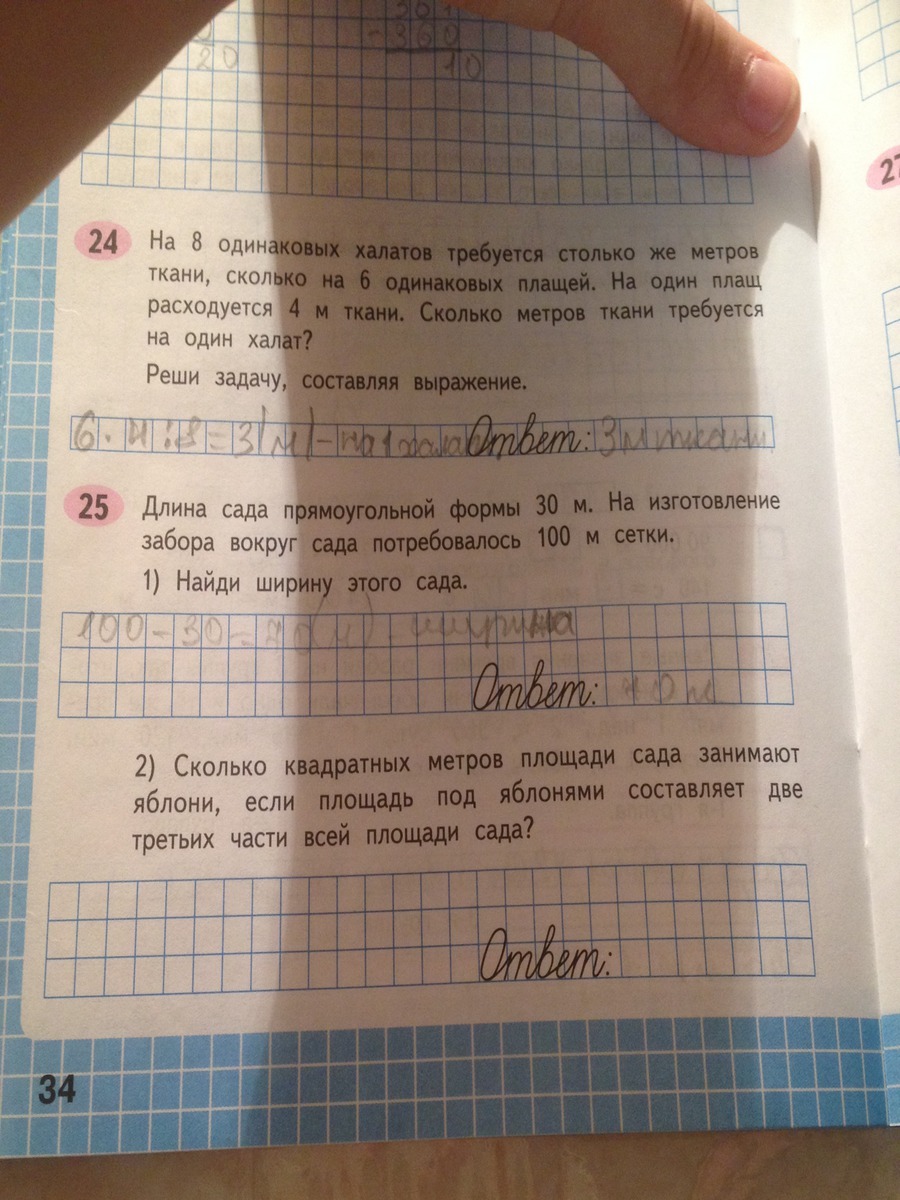 20
- 360
10
27
24 На 8 одинаковых халатов требуется столько же метров
ткани, сколько на 6 одинаковых плащей. На один плащ
расходуется 4 м ткани. Сколько метров ткани требуется
на один халат?
Реши задачу, составляя выражение.
6 · 4 : 8 = 3 (м) - на 1 халат Ответ: 3 м ткани
25 Длина сада прямоугольной формы 30 м. На изготовление
забора вокруг сада потребовалось 100 м сетки.
1) Найди ширину этого сада.
100 - 30 = 70 (м) - ширина
Ответ: 70 м
2) Сколько квадратных метров площади сада занимают
яблони, если площадь под яблонями составляет две
третьих части всей площади сада?
Ответ:
34